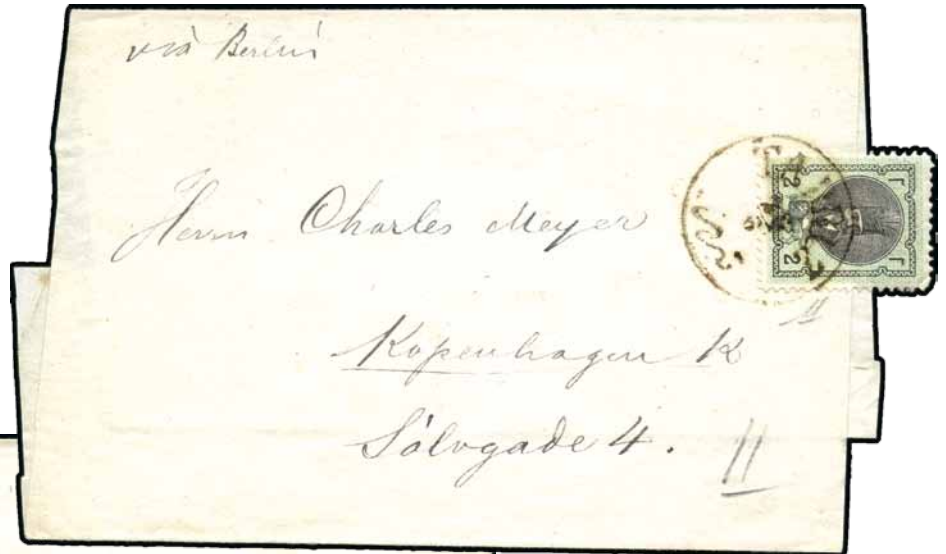 viâ Berlin
Herrn Charles Meyer
Kopenhagen K
Sölvgade 4.
11
2
2